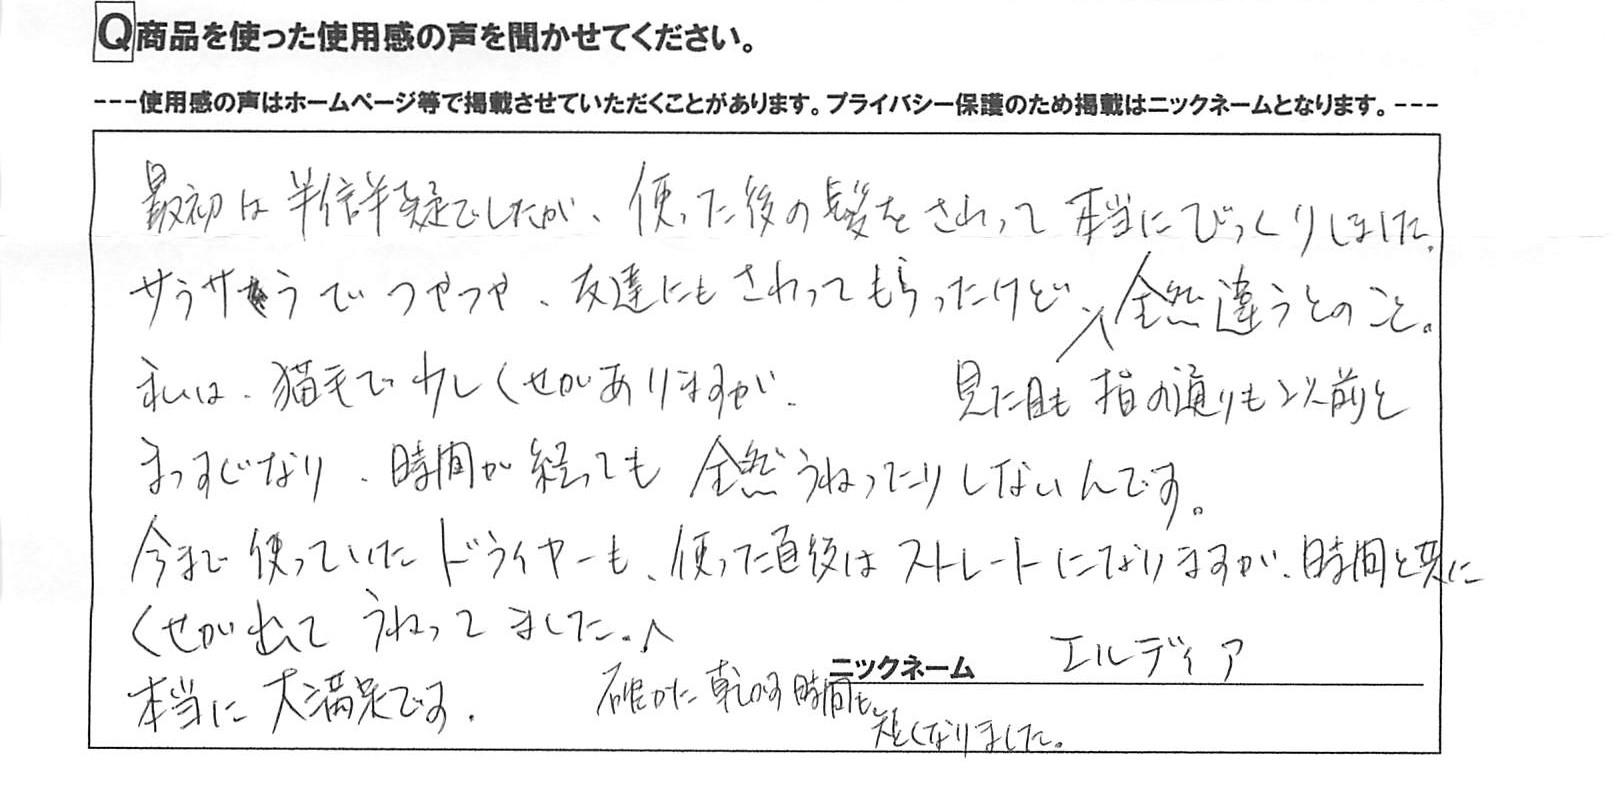 Q商品を使った使用感の声を聞かせてください。
---使用感の声はホームページ等で掲載させていただくことがあります。プライバシー保護のため掲載はニックネームとなります。---
最初は半信半疑でしたが、使った後の髪をさわって本当にびっくりしました。
サラサラでつやつや、友達にもさわってもらったけど全然違うとのこと。
見た目も指の通りも以前と
私は、猫毛で少しくせがありますが、
まっすぐなり、時間が経っても全然うねったりしないんです。
今まで使っていたドライヤーも、使った直後はストレートになりますが、時間と共に
くせが出てうねってました。
確かに乾かす時間も
短くなりました。
本当に大満足です。
ニックネーム エルディア